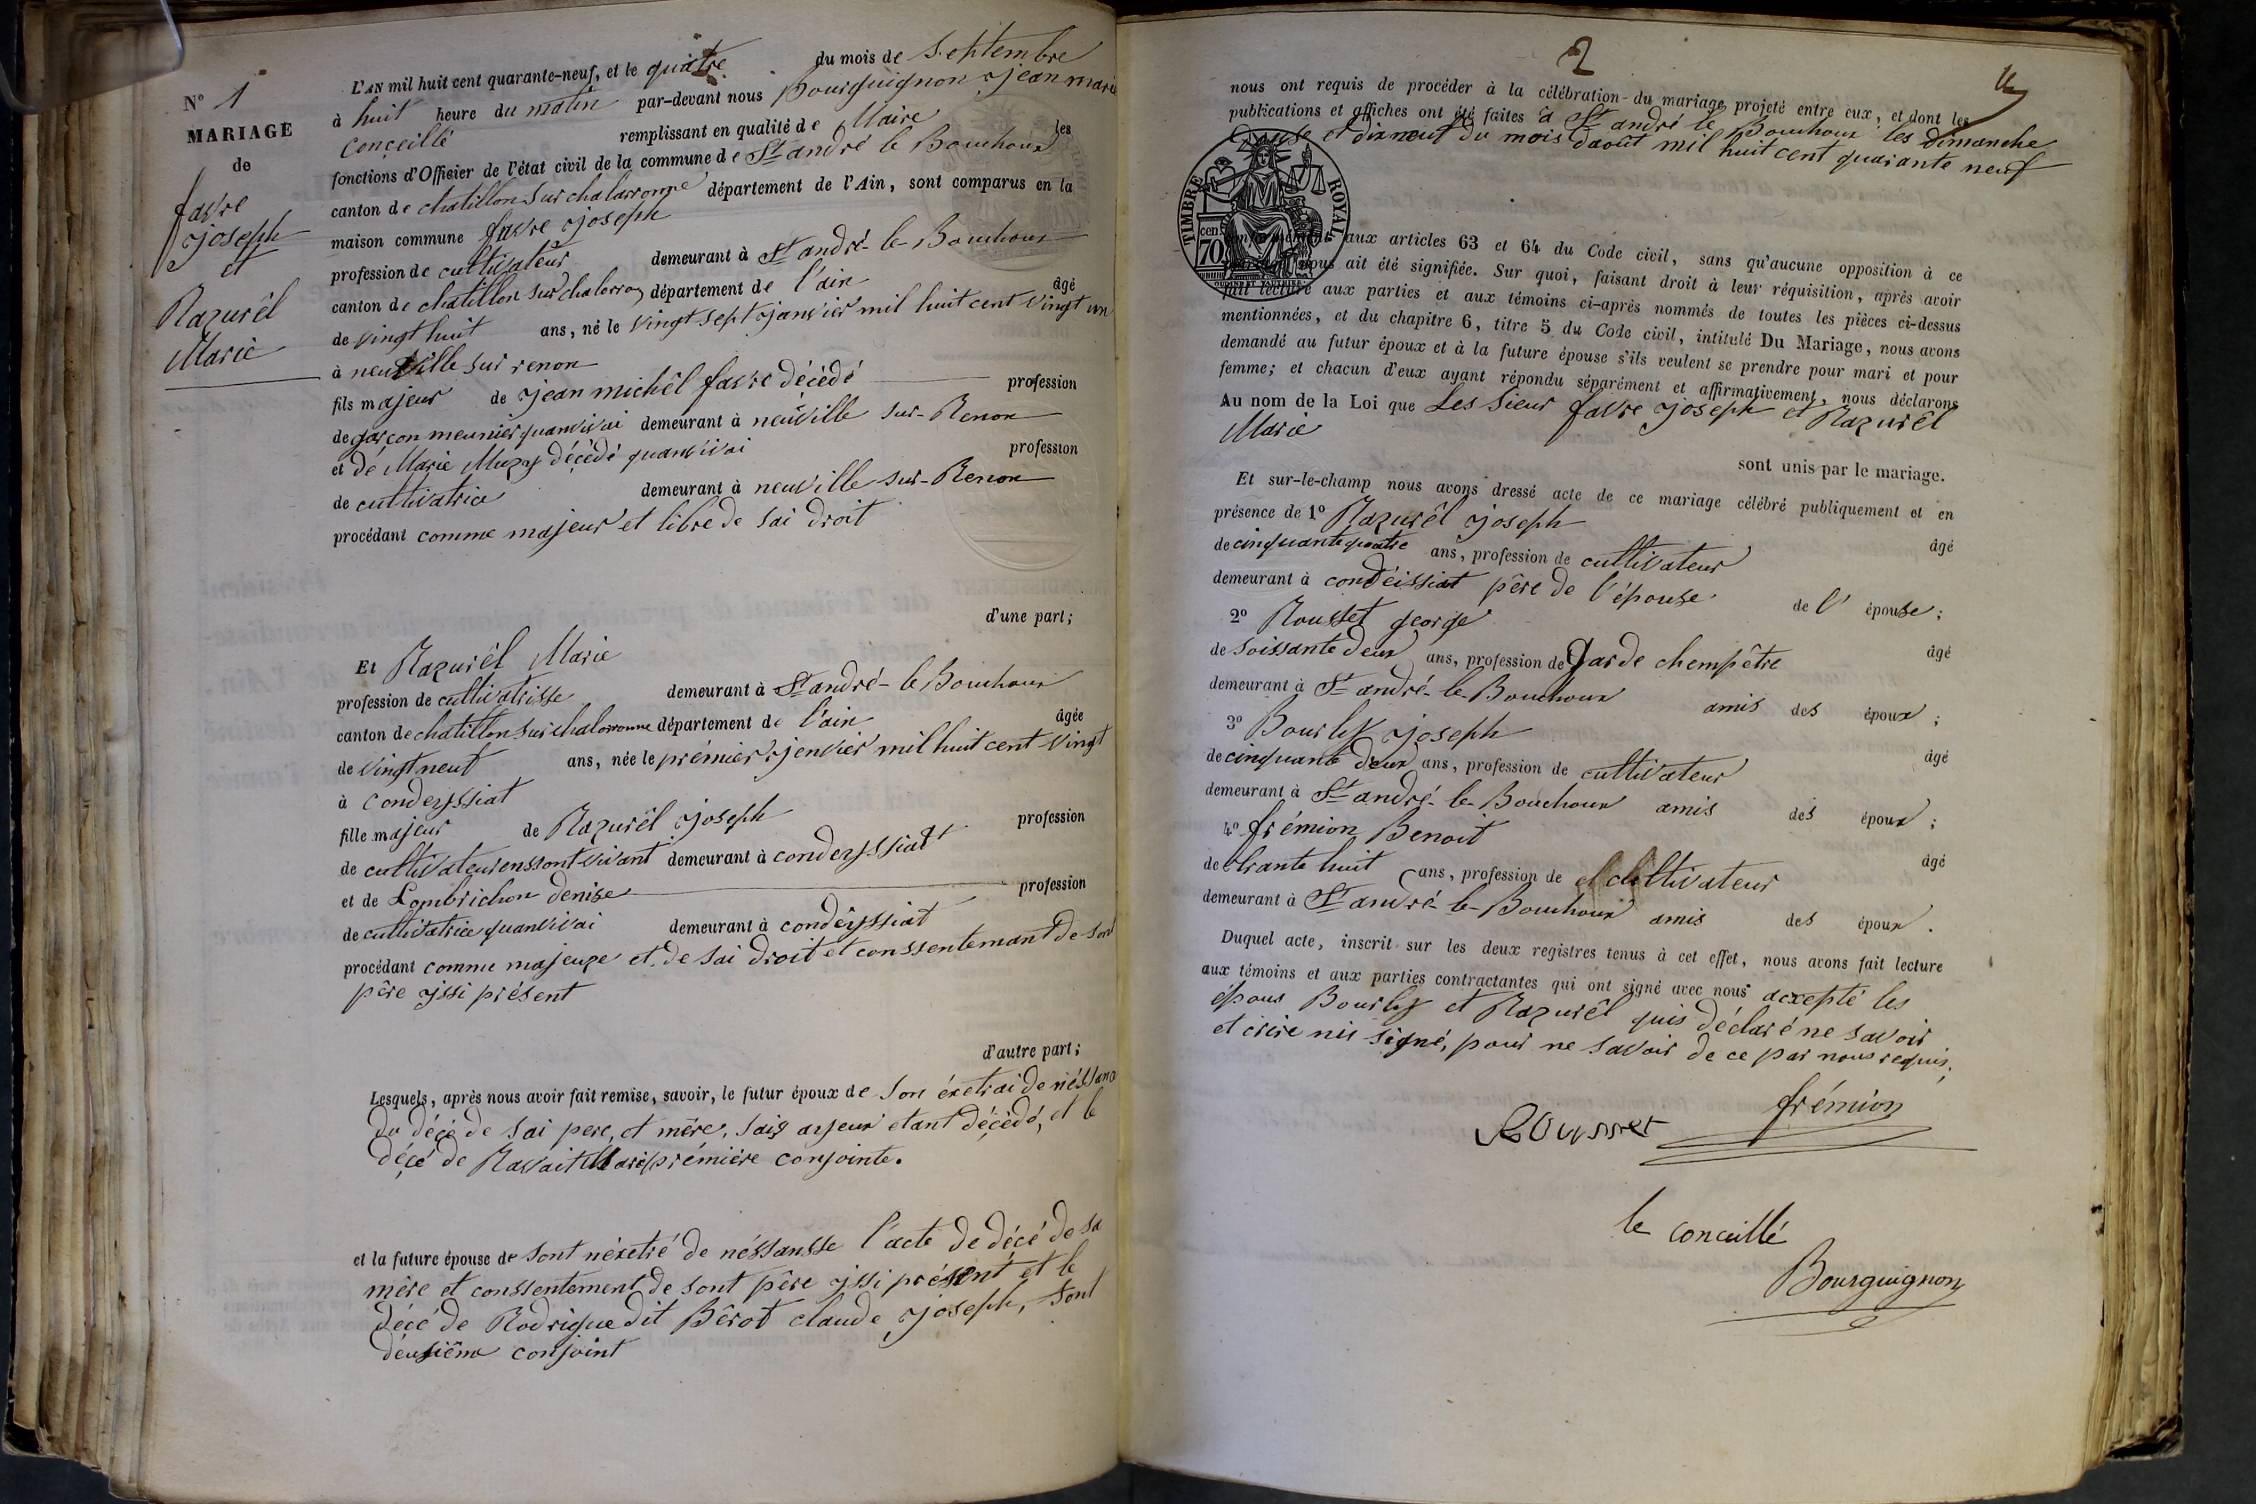 N° 1
MARIAGE
de
favre
joseph
et
Razurêl
Marie
L'AN mil huit cent quarante-neuf, et le quatre du mois de Septembre
à huit heure du matin par-devant nous Bourguignon jean marie
conçeillé remplissant en qualité de Maire les
fonctions d'Officier de l'état civil de la commune de St andré le Bouchoux
canton de chatillon sur chalaronne département de l'Ain, sont comparus en la
maison commune favre joseph
profession de cultivateur demeurant à St andré-le-Bouchoux
canton de chatillon sur chalaron département de l'ain âgé
de vingt huit ans, né le vingt sept janvier mil huit cent vingt un
à neuville sur renon
fils majeur de jean michêl favre décédé profession
de garçon meunier quanvivai demeurant à neuville sur-Renon
et de Marie Muzy décédé quanvivai profession
de cultivatrice demeurant à neuville sur-Renon
procédant comme majeur et libre de sai droit
d'une part;
Et Razurêl Marie
profession de cultivatrisse demeurant à St andré-le Bouchoux
canton de chatillon sur chaloronne département de l'ain âgée
de vingt neuf ans, née le prémier jenvier mil huit cent vingt
à conderssiat
fille majeur de Razurêl joseph profession
de cultivateur enssont vivant demeurant à conderssiat
et de Lombrichon denise profession
de cultivatrice quanvivai demeurant à condêyssiat
procédant comme majeure et de sai droit et conssentemant de sont
père yssi présent
d'autre part;
Lesquels, après nous avoir fait remise, savoir, le futur époux de son éxetrai de néssance
du décé de sai pere, et mêre, sais ayeux etant décédé, et le
décé de Ravait Marie prémière conjointe.
et la future épouse de sont nêxetré de néssansse l'acte de décé de sa
mêre et conssentement de sont pêre yssi présent et le
décé de Rodrigue dit Bêrot claude joseph, sont
deusiême conjoint
2
nous ont requis de procéder à la célébration du mariage projeté entre eux, et dont les
publications et affiches ont été faites à St andré le Bouchoux les dimanche
Douse et dixneuf du mois daoût mil huit cent quarante neuf
TIMBRE ROYAL
cen. 70
aux articles 63 et 64 du Code civil, sans qu'aucune opposition à ce
nous ait été signifiée. Sur quoi, faisant droit à leur réquisition, après avoir
fait lecture aux parties et aux témoins ci-après nommés de toutes les pièces ci-dessus
mentionnées, et du chapitre 6, titre 5 du Code civil, intitulé Du Mariage, nous avons
demandé au futur époux et à la future épouse s'ils veulent se prendre pour mari et pour
femme; et chacun d'eux ayant répondu séparément et affirmativement, nous déclarons
Au nom de la Loi que Les Sieur favre joseph et Razurêl
Marie
sont unis par le mariage.
Et sur-le-champ nous avons dressé acte de ce mariage célébré publiquement et en
présence de 1° Razurêl joseph âgé
de cinquante quatre ans, profession de cultivateur
demeurant à condéissiat père de l'épouse de l' épouse;
2° Rousset george âgé
de soissante deux ans, profession de garde chempêtre
demeurant à St andré-le-Bouchoux amis des époux;
3° Bourly joseph âgé
de cinquante deux ans, profession de cultivateur
demeurant à St andré-le-Bouchoux amis des époux;
4° frémion Benoit âgé
de trante huit ans, profession de cultivateur
demeurant à St andré-le-Bouchoux amis des époux.
Duquel acte, inscrit sur les deux registres tenus à cet effet, nous avons fait lecture
aux témoins et aux parties contractantes qui ont signé avec nous accepté les
épous Bourly et Razurêl quis déclaré ne savoir
et crire nis signé, pour ne savoir de ce par nous requis,
Rousset frémion
le conceillé
Bourguignon